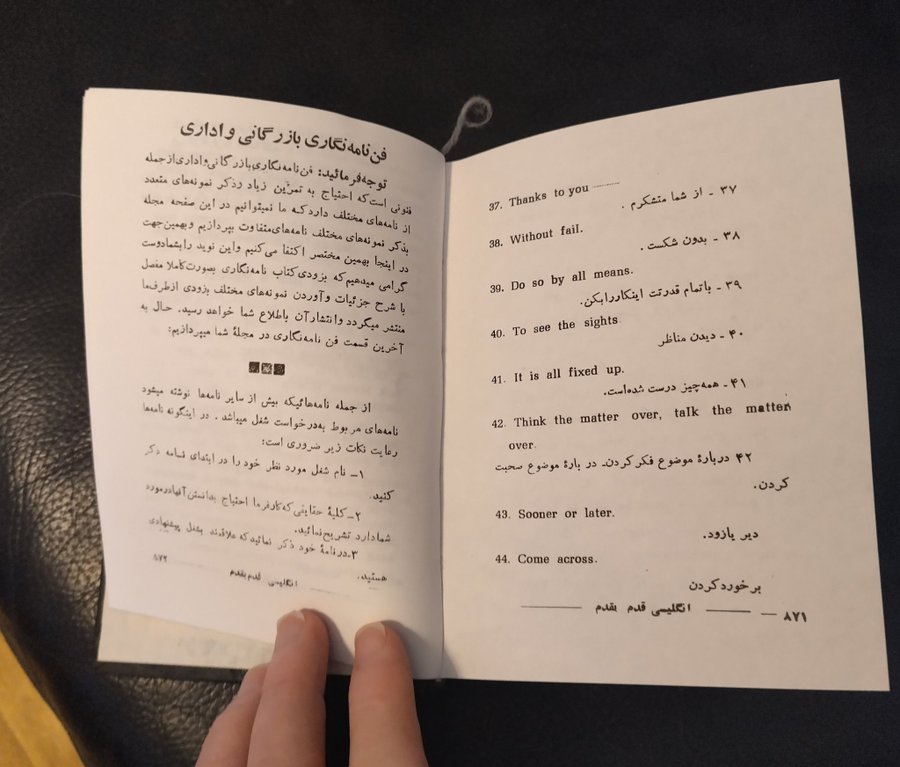 37. Thanks to you ..........
۳۷ - از شما متشکرم .
38. Without fail.
۳۸ - بدون شکست .
39. Do so by all means.
۳۹ - باتمام قدرتت اینکاررابکن.
40. To see the sights
۴۰ - دیدن مناظر
41. It is all fixed up.
۴۱ - همه‌چیز درست شده‌است.
42. Think the matter over, talk the matter
over.
۴۲ دربارهٔ موضوع فکر کردن- در بارهٔ موضوع صحبت
کردن.
43. Sooner or later.
دیر یازود.
44. Come across.
برخورد کردن
۸۷۱ — انگلیسی قدم بقدم
فن نامه‌نگاری بازرگانی و اداری
توجه‌فرمائید: فن نامه‌نگاری‌بازرگانی‌واداری‌ازجمله
فنونی است‌که احتیاج به تمرین زیاد وذکر نمونه‌های متعدد
از نامه‌های مختلف داردکه ما نمیتوانیم در این صفحه مجله
بذکر نمونه‌های مختلف نامه‌های‌متفاوت بپردازیم وبهمین‌جهت
در اینجا بهمین مختصر اکتفا می‌کنیم واین نوید رابشمادوست
گرامی میدهیم‌که بزودی‌کتاب نامه‌نگاری بصورت‌کاملا مفصل
با شرح جزئیات وآوردن نمونه‌های مختلف بزودی ازطرف‌ما
منتشر میگردد وانتشارآن باطلاع شما خواهد رسید. حال به
آخرین قسمت فن نامه‌نگاری در مجلهٔ شما میپردازیم:
از جمله نامه‌هائیکه بیش از سایر نامه‌ها نوشته میشود
نامه‌های مربوط به‌درخواست شغل میباشد . در اینگونه نامه‌ها
رعایت نکات زیر ضروری است:
۱- نام شغل مورد نظر خود را در ابتدای نامه ذکر
کنید.
۲- کلیهٔ حقایقی‌که‌کارفرما احتیاج بدانستن‌آنهادرمورد
شمادارد تشریح‌نمائید.
۳- درنامهٔ خود ذکر نمائیدکه علاقمند بشغل پیشنهادی
هستید.
۸۷۲
انگلیسی قدم بقدم